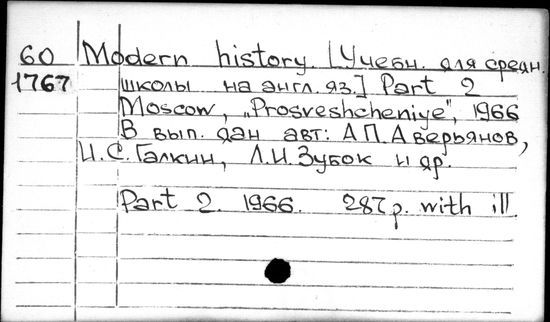 60 Modern history. [Учебн. для средн.
1767 школы на англ. яз.] Part 2
Moscow, „Prosveshcheniye", 1966
В вып. дан авт: А.П.Аверьянов,
И.С.Галкин, Л.И.Зубок и др.
Part 2. 1966. 287p. with ill.